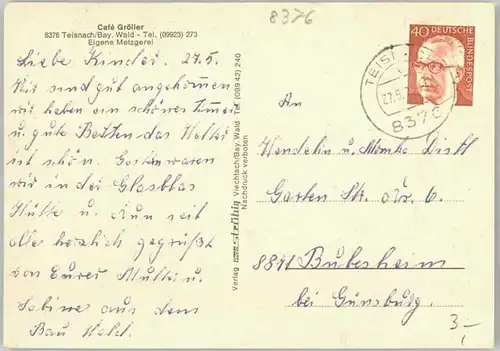 Café Gröller
8376 Teisnach/Bay. Wald - Tel. (09923) 273
Eigene Metzgerei
8376
Liebe Kinder. 27.5.
Wir sind gut angekommen
wir haben ein schönes Zimmer
u. gute Betten das Wetter
ist schön. Gestern waren
wir in der Glasblas
Hütte u. Nun seit
alle herzlich gegrüßt
von Eurer Mutti u.
Sabine aus dem
Bay Wald.
Verlag Viechtach/Bay. Wald Tel. (099 42) 240
Nachdruck verboten
40 DEUTSCHE BUNDESPOST
27.5.
8376
An
Wendelin u. Monika
Garten Str. Nr. 6.
8871 Bubesheim
bei Günsburg.
3,-